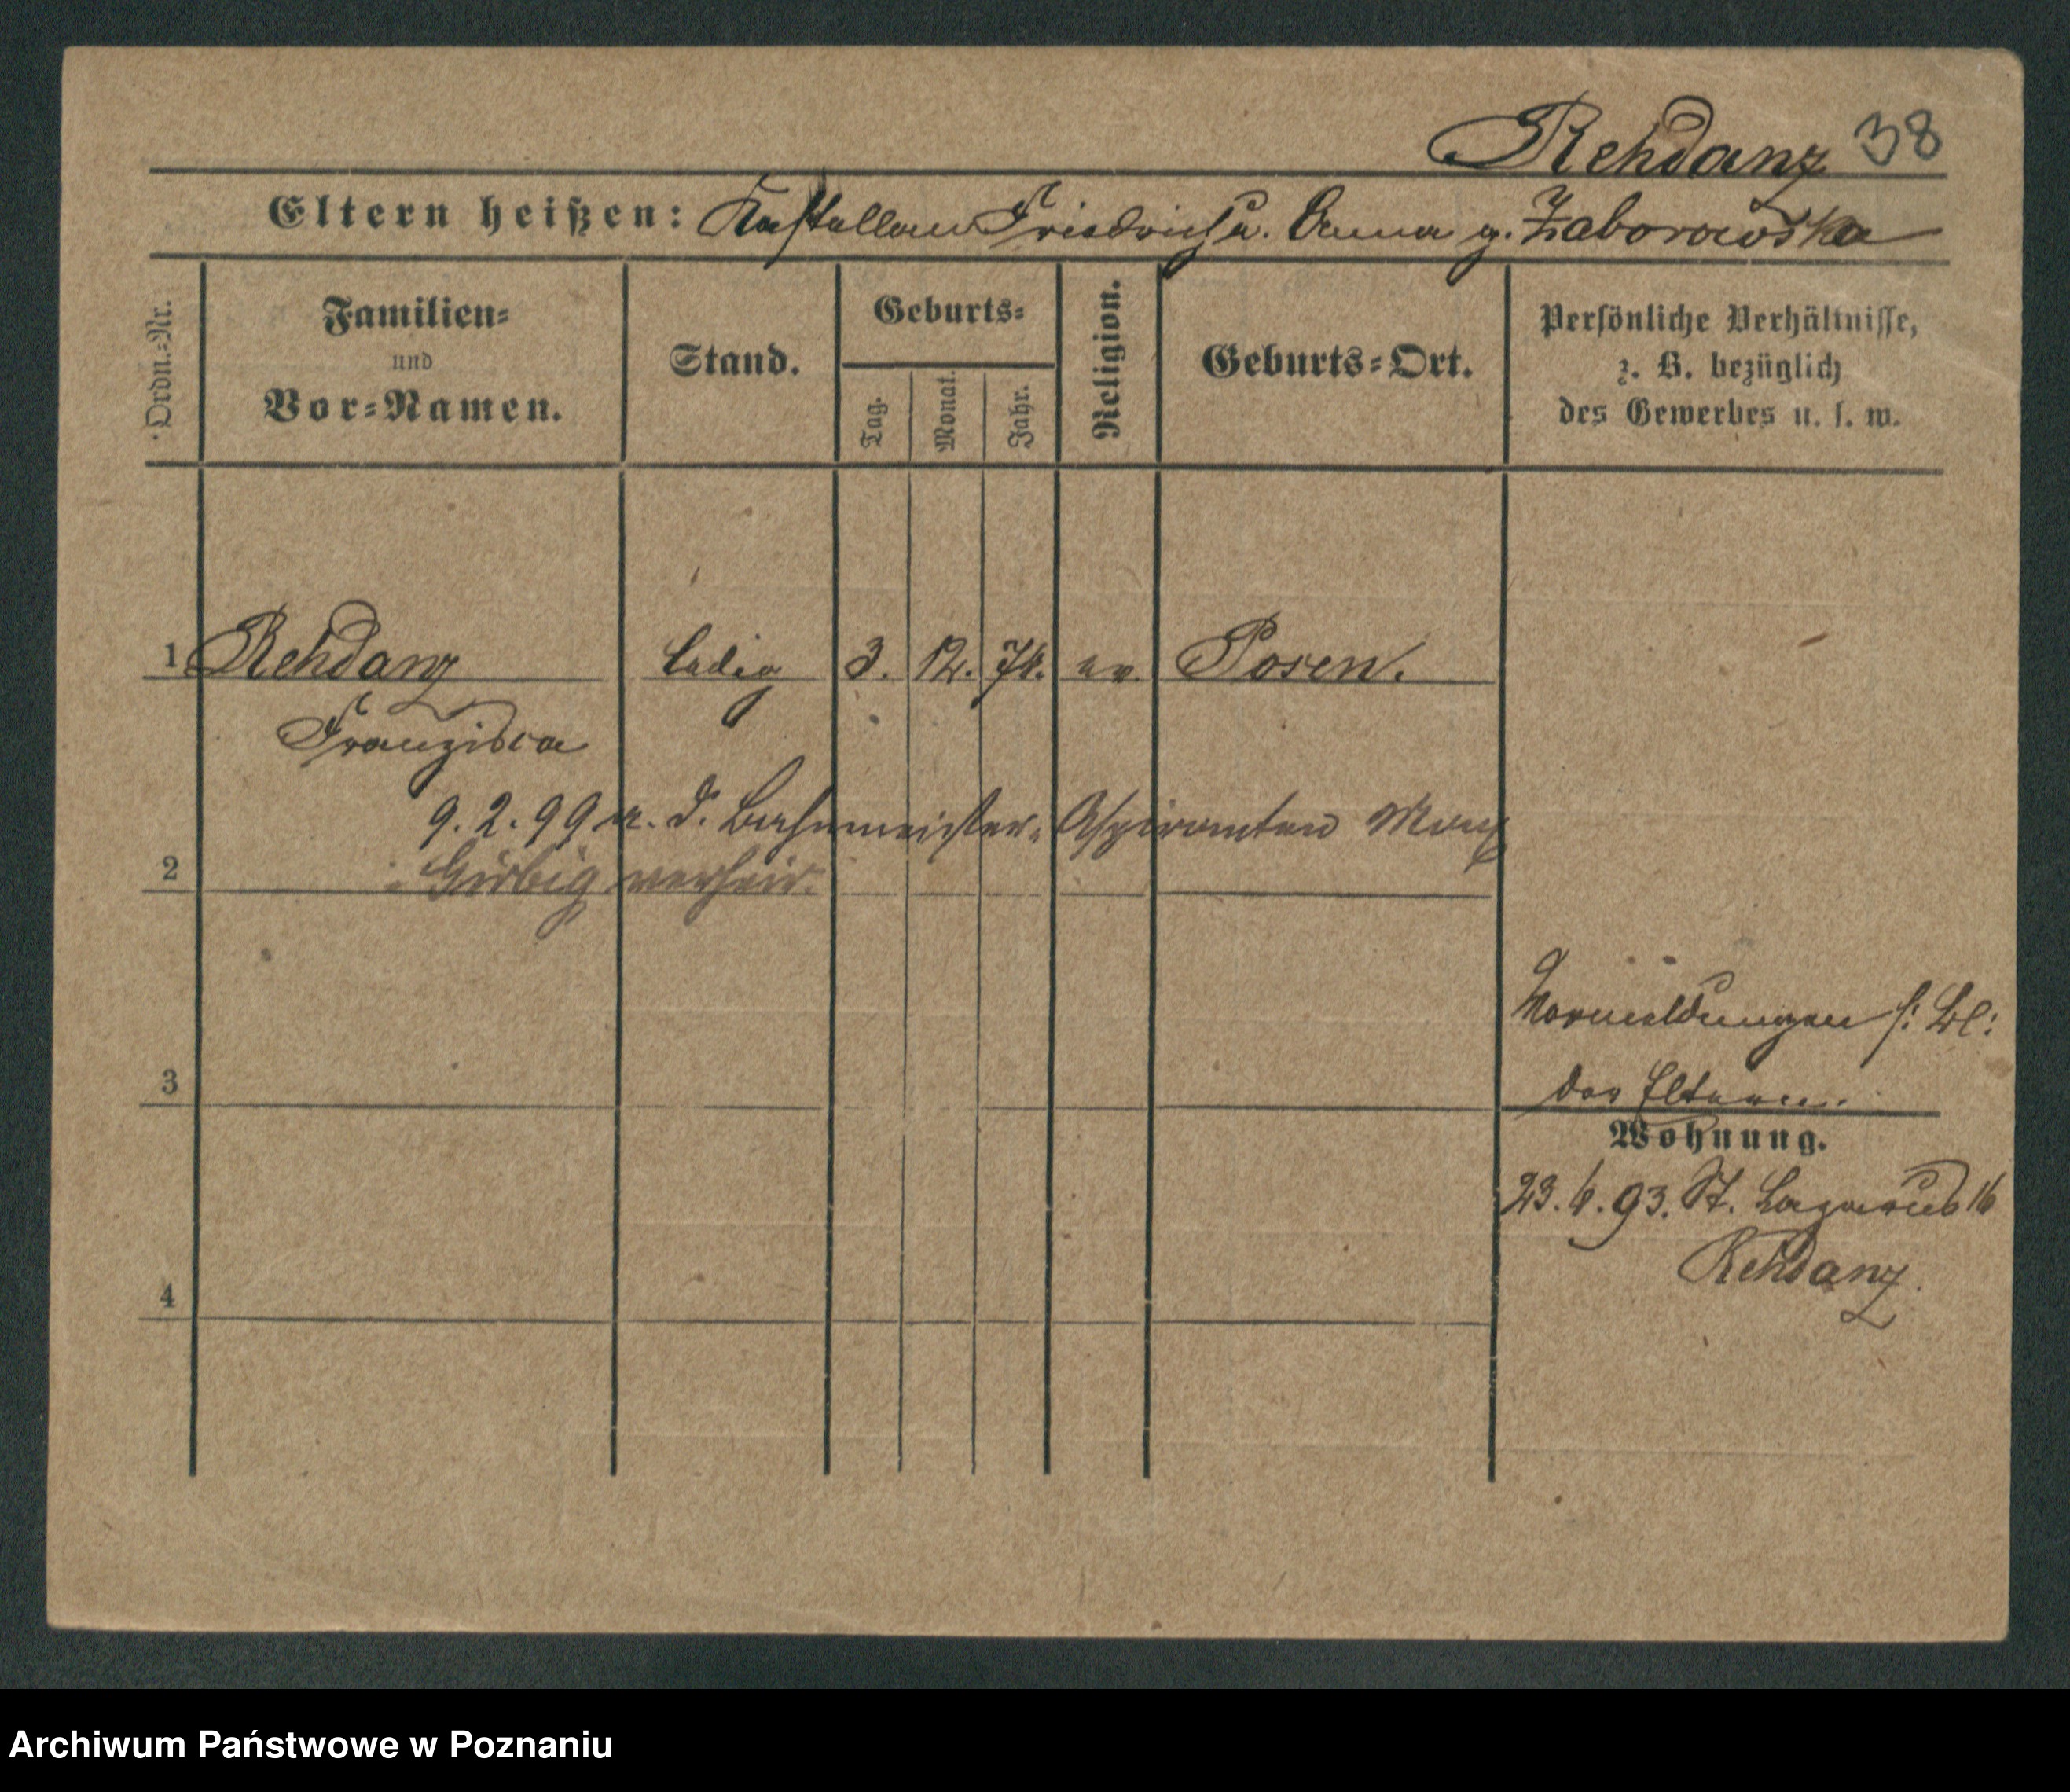 Rehdanz 38
Eltern heißen: Kastellan Friedrich u. Anna g. Zaborowska
Ordn.-Nr.
Familien-
und
Vor-Namen.
Stand.
Geburts-
Tag.
Monat.
Jahr.
Religion.
Geburts-Ort.
Persönliche Verhältnisse,
z. B. bezüglich
des Gewerbes u. s. w.
1 Rehdanz ledig 3. 12. 74. ev. Posen.
Franziska
9. 2. 99 m. d. Bahnmeister-Aspiranten Max
2 verheir.
Vormeldungen s: Bl:
3 der Eltern.
Wohnung.
23. 6. 93. St. Lazarus 16
Rehdanz.
4
Archiwum Państwowe w Poznaniu